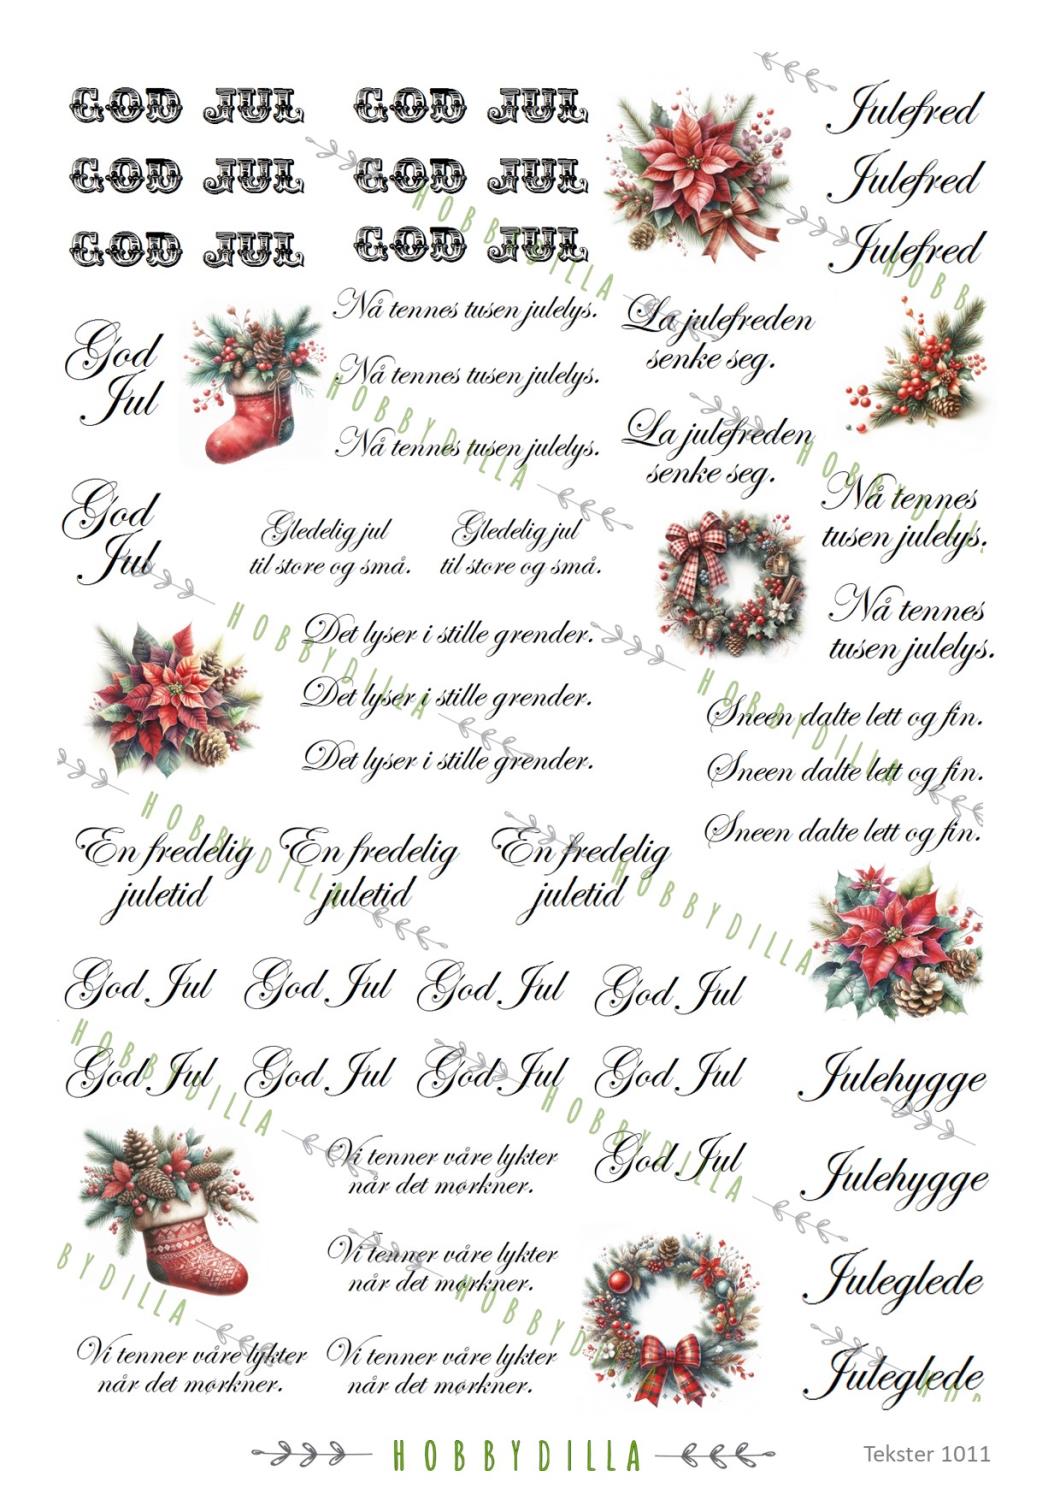 GOD JUL GOD JUL
GOD JUL GOD JUL
GOD JUL GOD JUL
Julefred
Julefred
Julefred
God
Jul
Nå tennes tusen julelys.
Nå tennes tusen julelys.
Nå tennes tusen julelys.
La julefreden
senke seg.
La julefreden
senke seg.
God
Jul
Gledelig jul
til store og små.
Gledelig jul
til store og små.
Nå tennes
tusen julelys.
Nå tennes
tusen julelys.
Det lyser i stille grender.
Det lyser i stille grender.
Det lyser i stille grender.
Sneen dalte lett og fin.
Sneen dalte lett og fin.
Sneen dalte lett og fin.
En fredelig
juletid
En fredelig
juletid
En fredelig
juletid
God Jul God Jul God Jul God Jul
God Jul God Jul God Jul God Jul
God Jul
Julehygge
Julehygge
Juleglede
Juleglede
Vi tenner våre lykter
når det mørkner.
Vi tenner våre lykter
når det mørkner.
Vi tenner våre lykter
når det mørkner.
Vi tenner våre lykter
når det mørkner.
HOBBYDILLA
HOBB
HOBBYDILLA
HOBBYDILLA
HOBBYDILLA
HOBBYDILLA
HOBBYDILLA
HOBBYDILLA
HOBBYDILLA
HOBBYDILLA
BYDILLA
HOBBYD
HOBBYDILLA
Tekster 1011